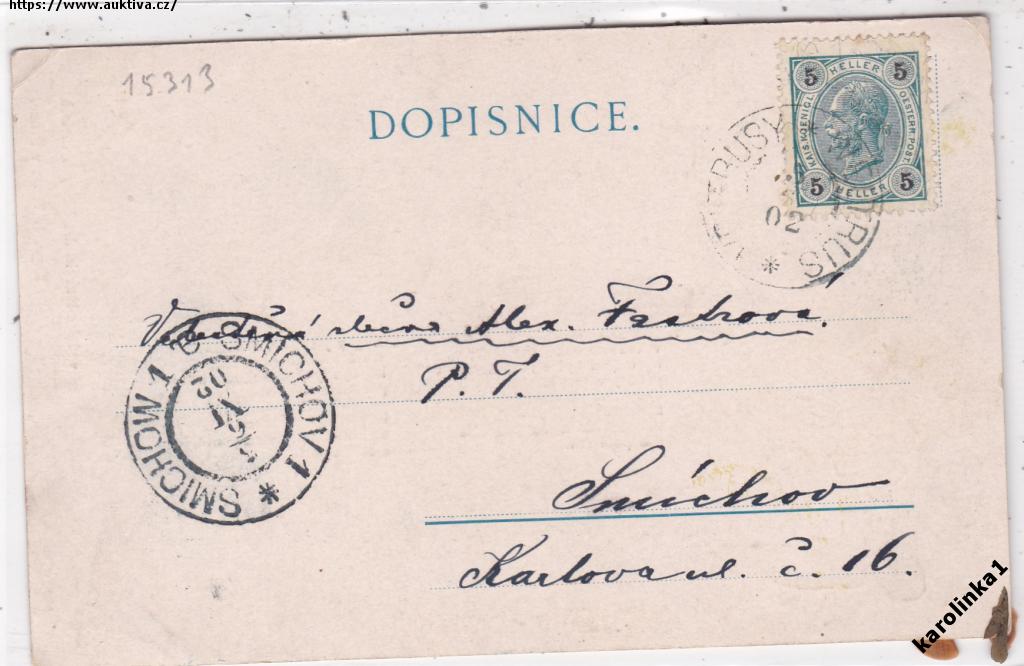 https://www.auktiva.cz/
15313
DOPISNICE.
5 HELLER 5
KAIS. KOENIGL. OESTERR. POST.
5 HELLER 5
02
slečna Alex.
P. T.
SMICHOV 1 * SMICHOW 1
02
Smíchov
Karlova ul. č. 16.
karolinka1